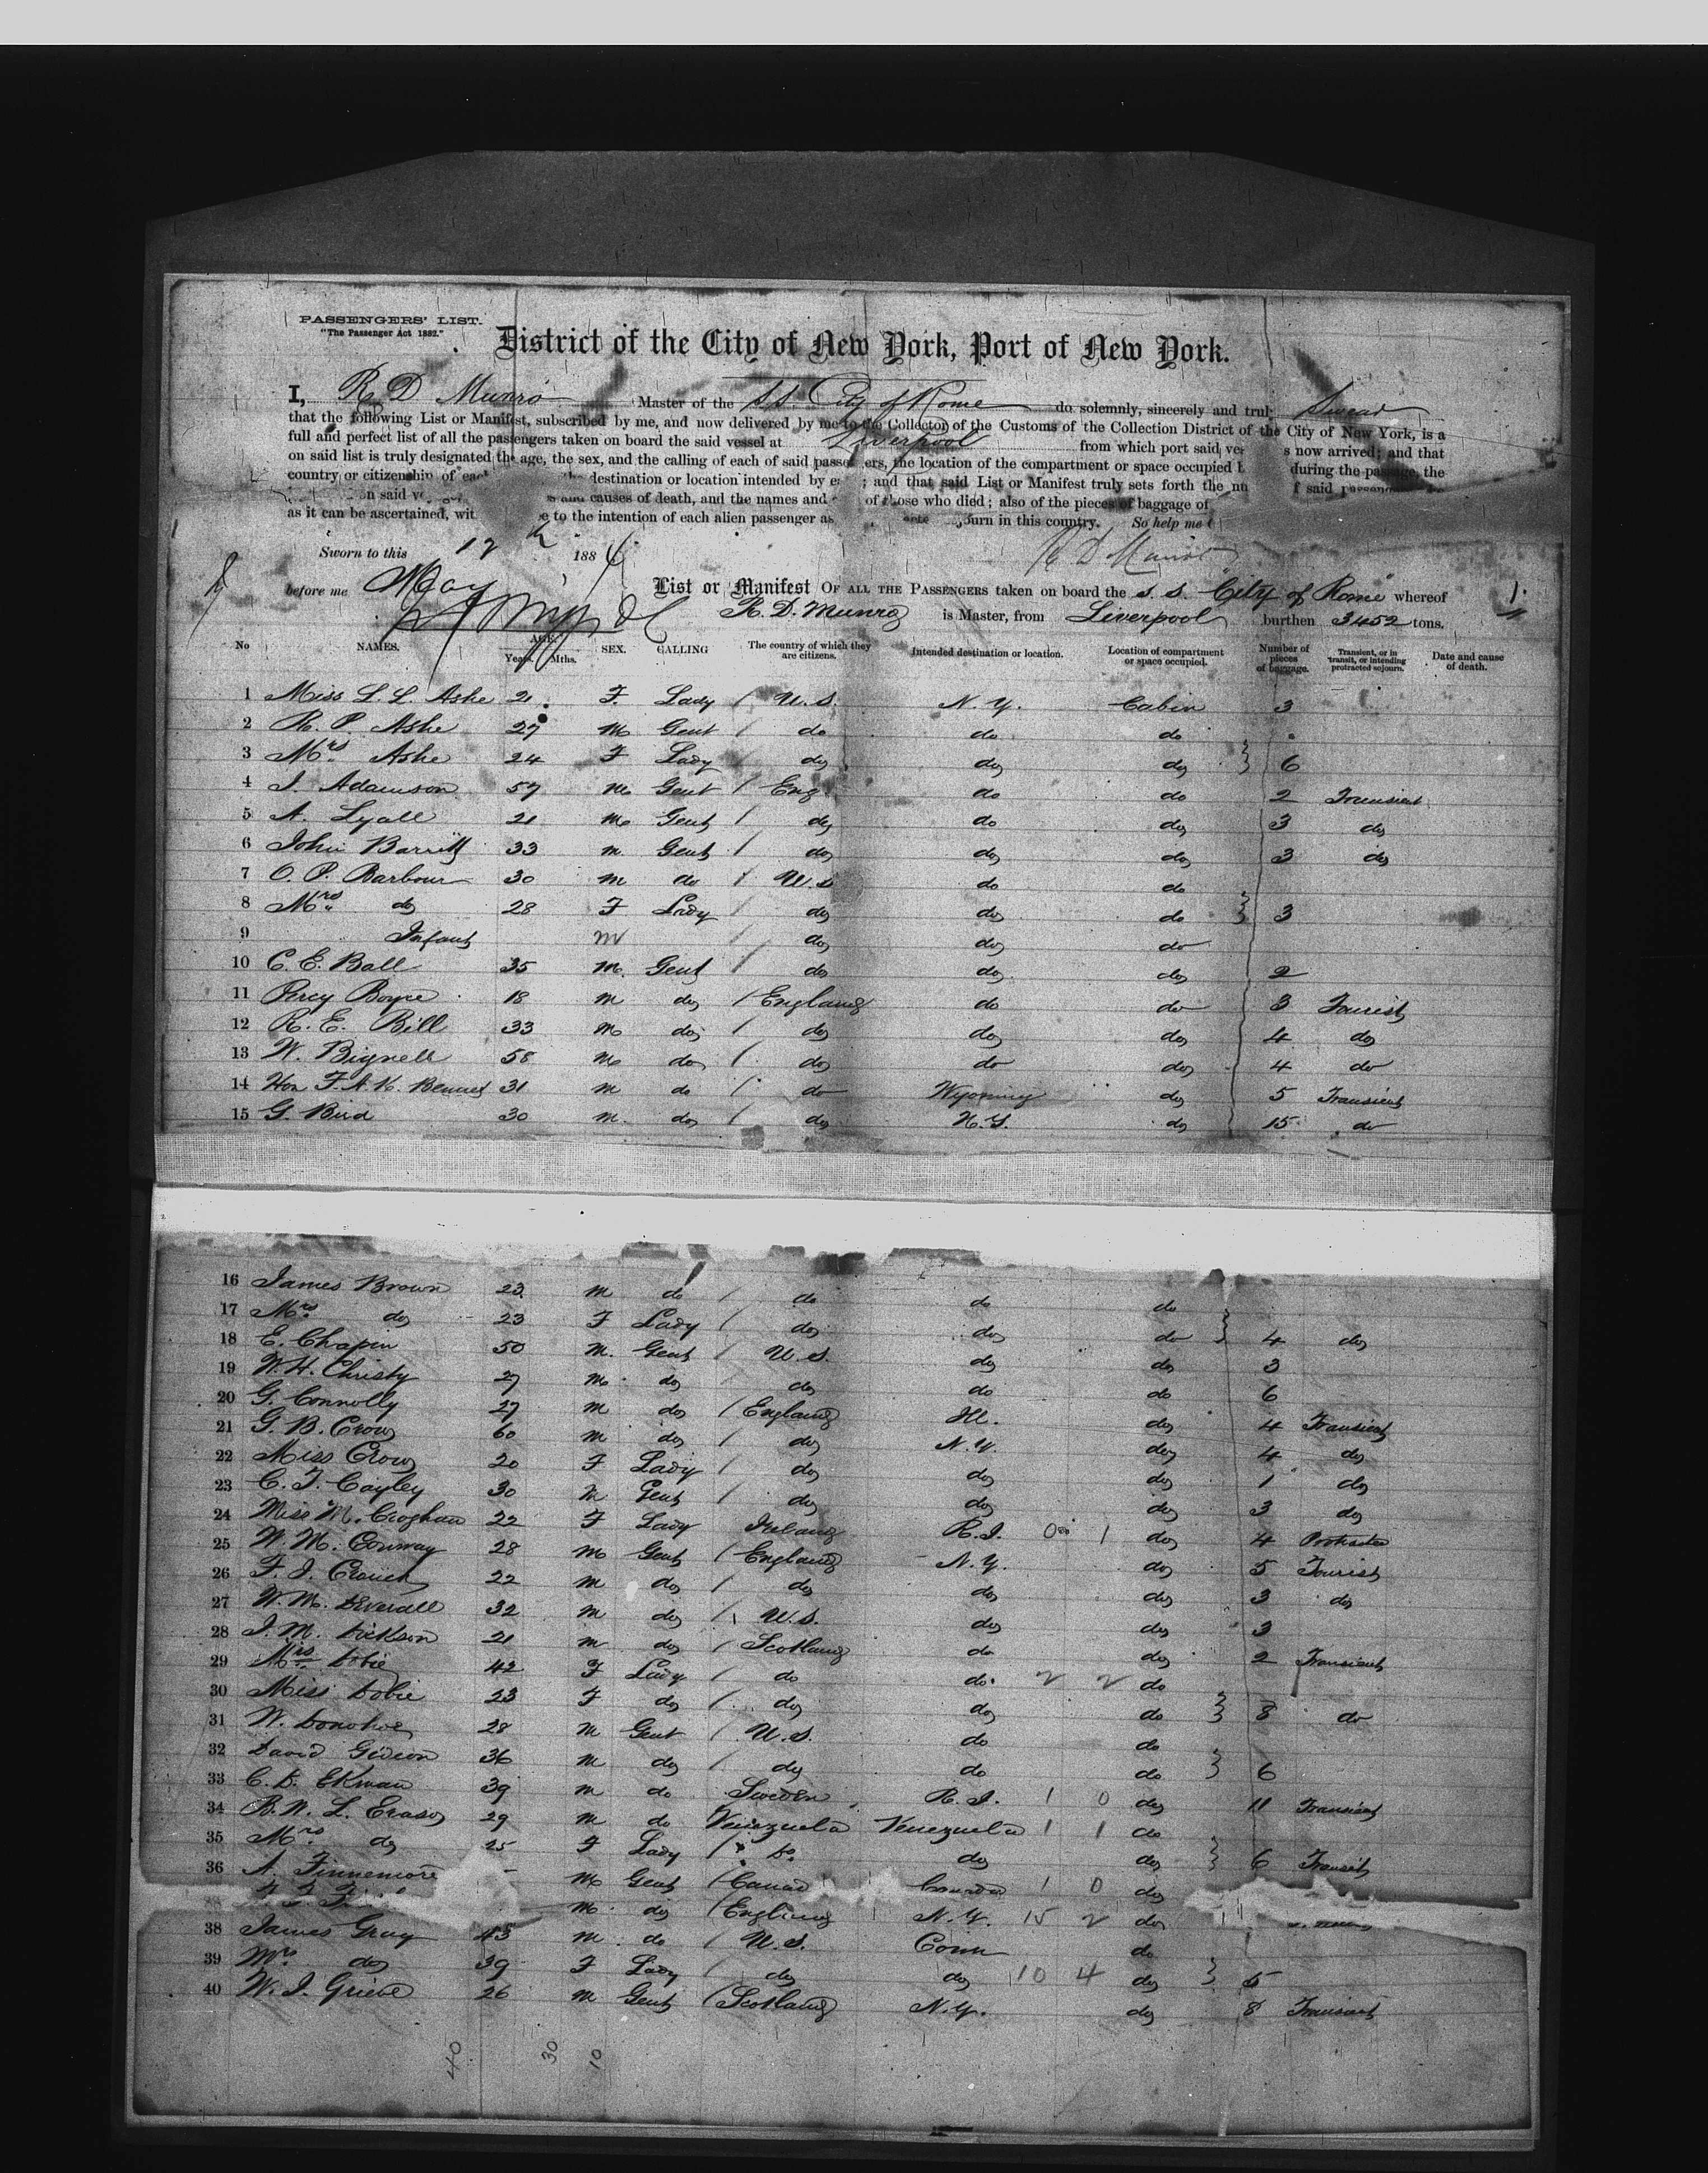 PASSENGERS' LIST.
"The Passenger Act 1882."
District of the City of New York, Port of New York.
I, R D Munro Master of the S.S. City of Rome do solemnly, sincerely and trul Swear
that the following List or Manifest, subscribed by me, and now delivered by me to the Collector of the Customs of the Collection District of the City of New York, is a
full and perfect list of all the passengers taken on board the said vessel at Liverpool from which port said ves s now arrived; and that
on said list is truly designated the age, the sex, and the calling of each of said passe ers, the location of the compartment or space occupied during the passage, the
country or citizenship of eac destination or location intended by e ; and that said List or Manifest truly sets forth the nu f said
on said and causes of death, and the names and of those who died; also of the pieces of baggage of
as it can be ascertained, wit e to the intention of each alien passenger as ourn in this country. So help me
R D Munro
Sworn to this 12th 1886
before me May
List or Manifest OF ALL THE PASSENGERS taken on board the S. S. City of Rome whereof
R. D. Munro is Master, from Liverpool burthen 3452 tons.
1.
No NAMES. AGE. Years. Mths. SEX. CALLING The country of which they are citizens. Intended destination or location. Location of compartment or space occupied. Number of pieces of baggage. Transient, or in transit, or intending protracted sojourn. Date and cause of death.
1 Miss L. L. Ashe 21 F. Lady / U.S. N.Y. Cabin 3
2 R. P. Ashe 27 M Gent / do do do
3 Mrs Ashe 24 F Lady / do do do } 6
4 J. Adamson 57 M Gent / Eng do do 2 Transient
5 A. Lyall 21 M Gent / do do do 3 do
6 John Barritt 33 M. Gent / do do do 3 do
7 O. P. Barbour 30 M do / U.S do do
8 Mrs do 28 F Lady / do do do } 3
9 Infant M / do do do
10 C. E. Ball 35 M. Gent / do do do 2
11 Percy Boyce 18 M do / England do do 3 Tourist
12 R. E. Bill 33 M do / do do do 4 do
13 W. Bignell 58 M do / do do do 4 do
14 Hon F. A. K. Bennet 31 M do / do Wyoming do 5 Transient
15 G. Bird 30 M. do / do N.Y. do 15 do
16 James Brown 23 M do / do do do
17 Mrs do 23 F Lady / do do do } 4 do
18 E. Chapin 50 M. Gent / U.S. do do 3
19 W. H. Christy 27 M. do do do do 6
20 G. Connolly 27 M do / England Ill. do 4 Transient
21 G. B. Crow 60 M do / do N.Y. do 4 do
22 Miss Crow 20 F Lady / do do do 1 do
23 C. T. Cayley 30 M Gent / do do do 3 do
24 Miss M. Croghan 22 F Lady Ireland R.I. 0 1 do 4
25 W. M. Conway 28 M Gent / England N.Y. do 5 Tourist
26 F. J. Crouch 22 M do / do do do 3 do
27 W. M. Deverall 32 M do / U.S. do do 3
28 J. M. Dickson 21 M do / Scotland do do 2 Transient
29 Mrs Dobie 42 F Lady / do do 2 2 do
30 Miss Dobie 23 F do / do do do } 8 do
31 W. Donohoe 28 M Gent / U.S. do do
32 David Gideon 36 M do / do do do } 6
33 C. D. Ekman 39 M do Sweden R.I. 1 0 do 11 Transient
34 B. N. L. Eraso 29 M do Venezuela Venezuela 1 1 do
35 Mrs do 25 F Lady / Do do do } 6 Transit
36 A. Finnemore M Gent / Canad Canada 1 0 do
M. do / England N.Y. 15 2 do
38 James Gray 43 M. do / U.S. Conn do
39 Mrs do 39 F Lady / do do 10 4 do } 5
40 W. J. Grieve 26 M Gent / Scotland N.Y. do 8 Transient
40 30 10